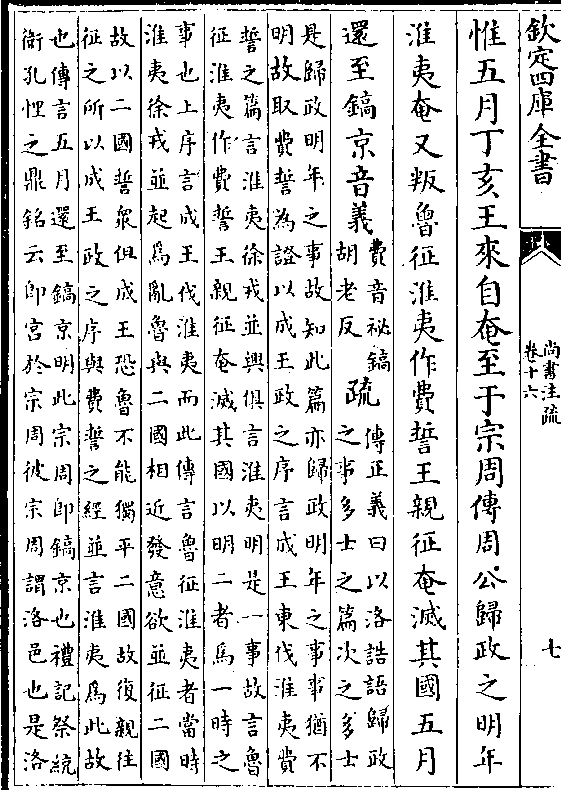 欽定四庫全書
尚書注疏
卷十六
七
惟五月丁亥王來自奄至于宗周傳周公歸政之明年
淮夷奄又叛魯征淮夷作費誓王親征奄滅其國五月
還至鎬京音義
費音祕鎬
胡老反
疏
傳正義曰以洛誥語歸政
之事多士之篇次之多士
是歸政明年之事故知此篇亦歸政明年之事事猶不
明故取費誓為證以成王政之序言成王東伐淮夷費
誓之篇言淮夷徐戎並興俱言淮夷明是一事故言魯
征淮夷作費誓王親征奄滅其國以明二者為一時之
事也上序言成王伐淮夷而此傳言魯征淮夷者當時
淮夷徐戎並起為亂魯與二國相近發意欲並征二國
故以二國誓眾但成王恐魯不能獨平二國故復親往
征之所以成王政之序與費誓之經並言淮夷為此故
也傳言五月還至鎬京明此宗周即鎬京也禮記祭統
衛孔悝之鼎銘云即宮於宗周彼宗周謂洛邑也是洛